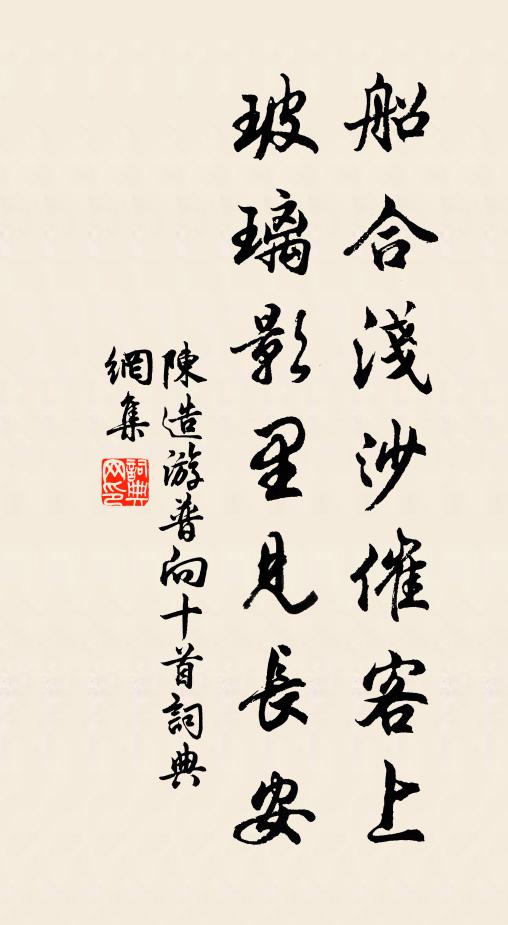 船合淺沙催客上
玻璃影里見長安
陳造游普向十首詞典
網集
詞典網印